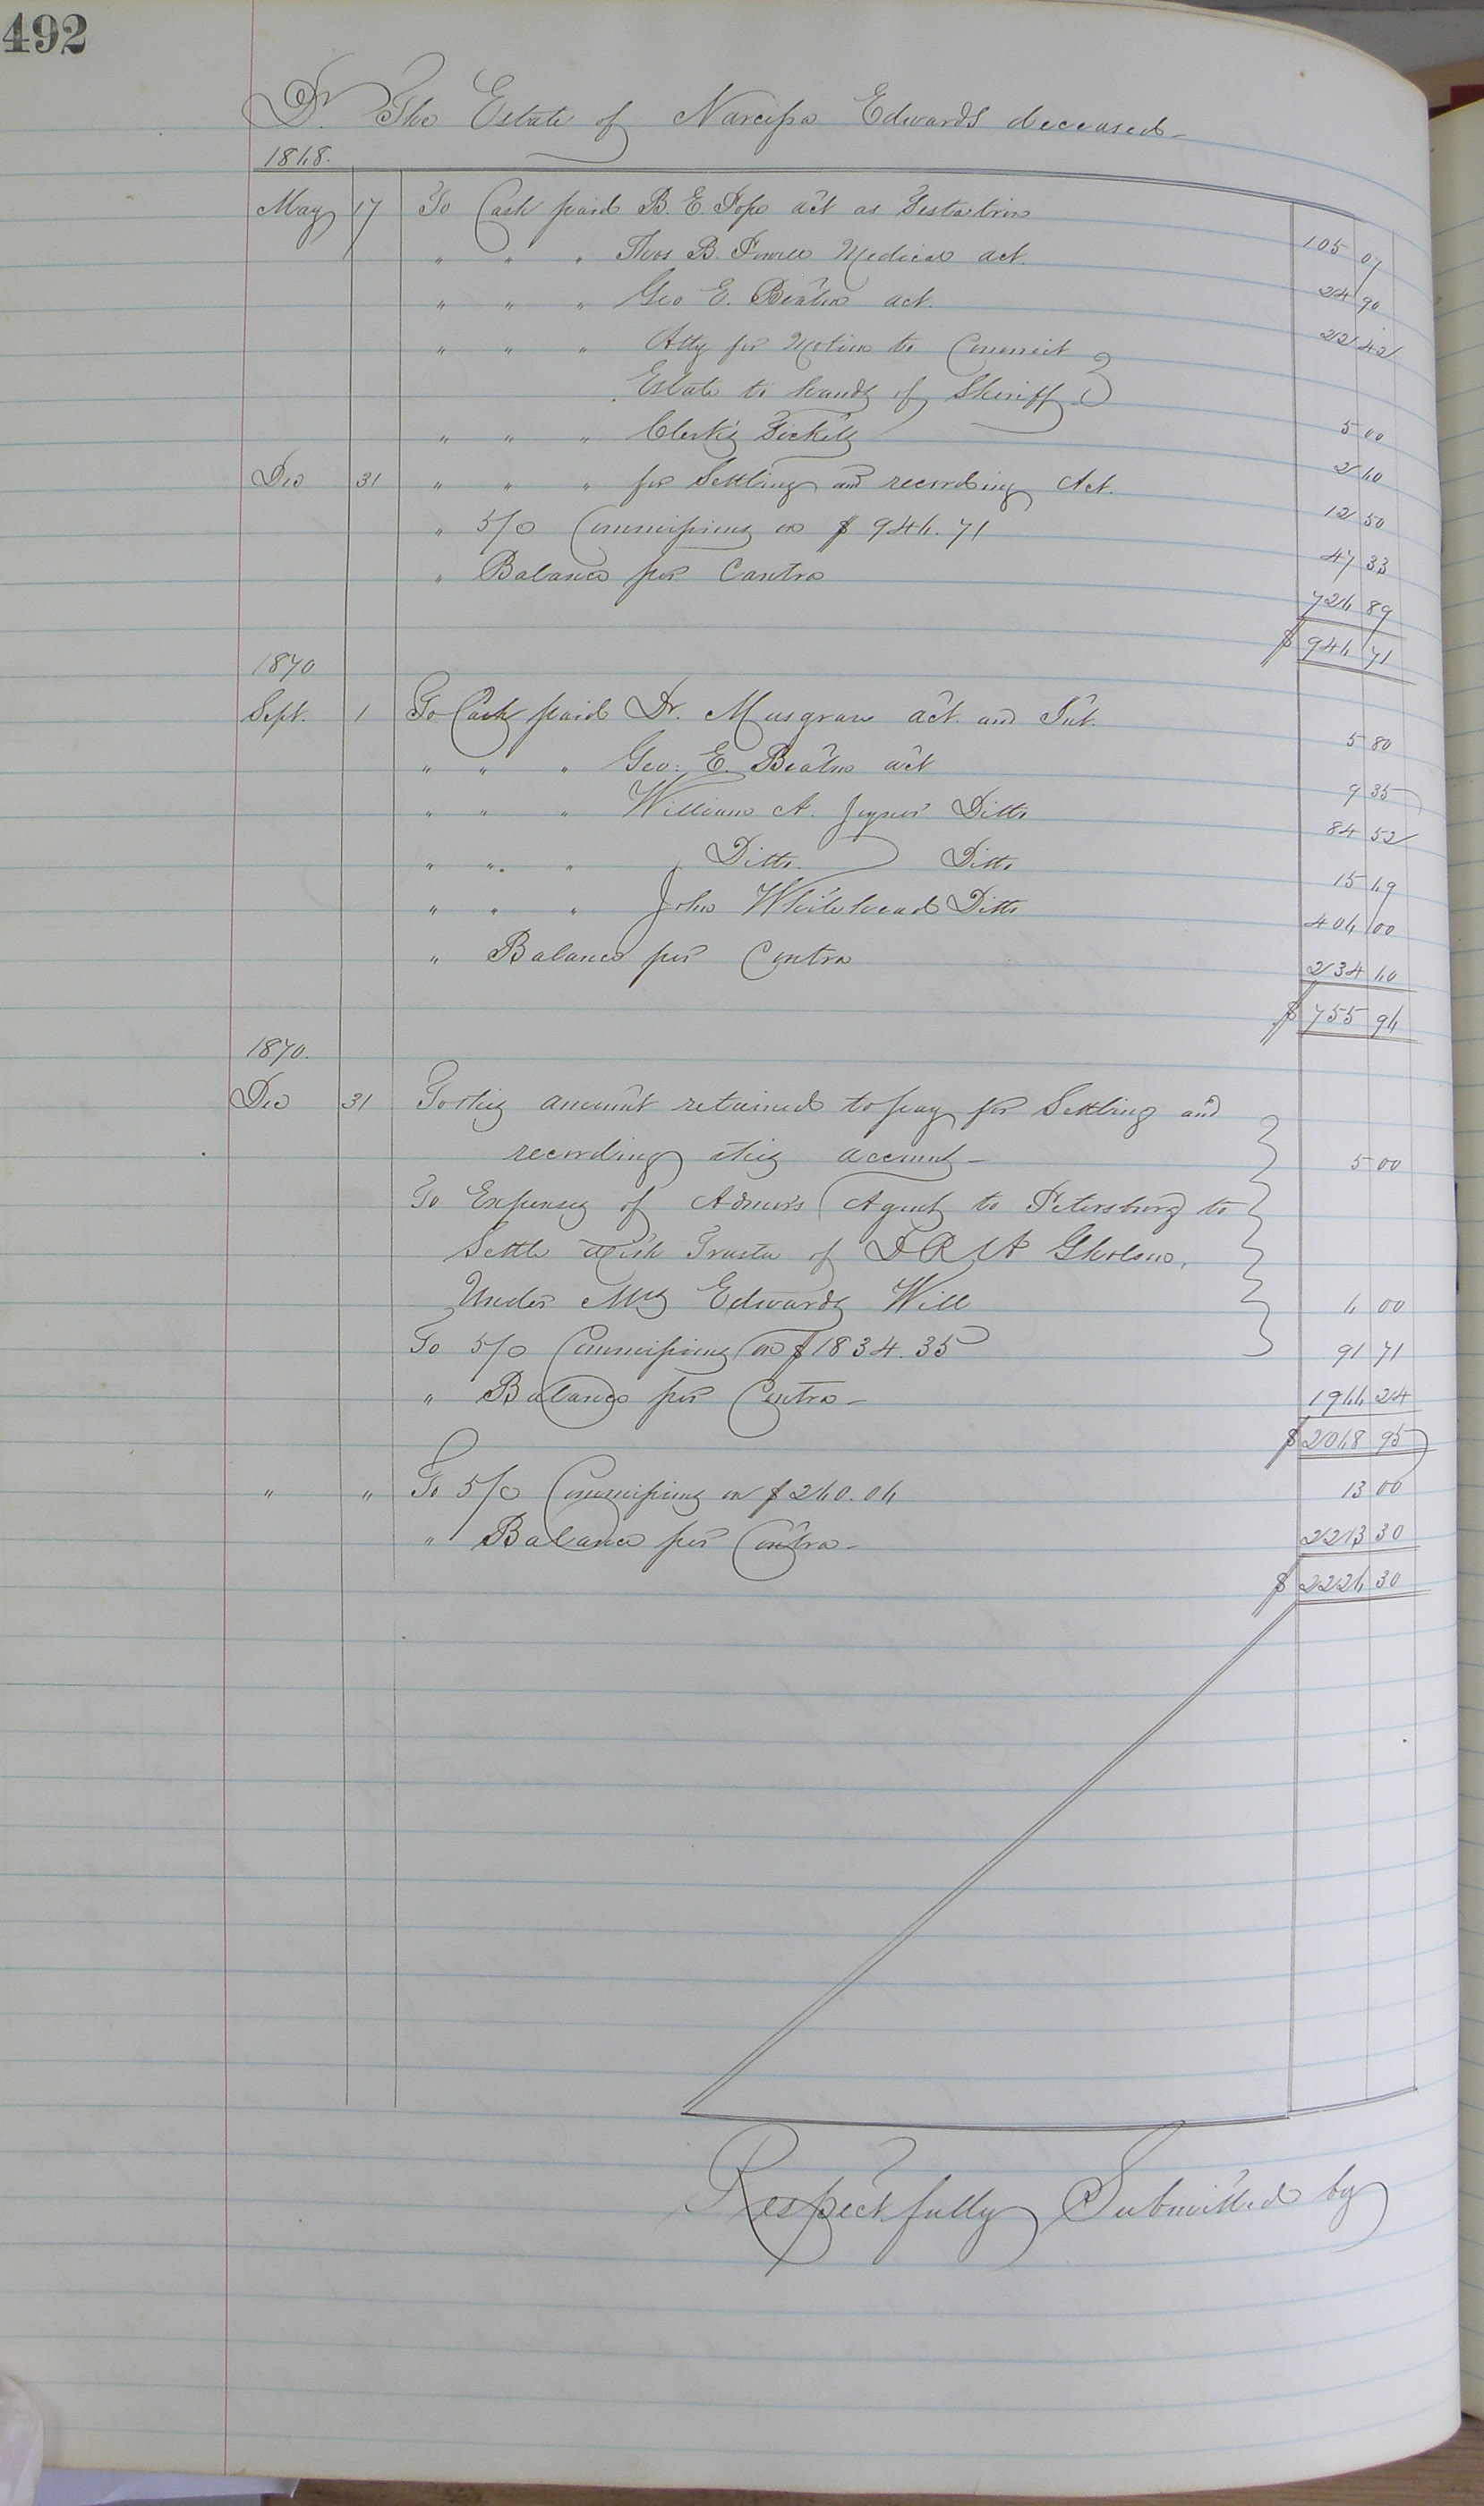 492
Dr. The Estate of Narcissa Edwards deceased
1868.
May 17 To Cash paid B. E. Pope act as Testatrix 105 07
" " " Thos B. Powell Medical act. 24 90
" " " Geo E. Beaton act. 22 42
" " " Atty for Motion to Commit
Estate to hands of Sheriff 5 00
" " " Clerk's Tickets 2 60
Dec 31 " " " for Settling and recording Act. 12 50
" 5/0 Commissions on $ 946.71 47 33
" Balance per Contra 726 89
$ 946 71
1870
Sept. 1 To Cash paid Dr. Musgrave act. and Int. 5 80
" " " Geo: E. Beaton act 9 35
" " " William A. Joyner Ditto 84 52
" " " Ditto Ditto 15 69
" " " John Whitehead Ditto 406 00
" Balance per Contra 234 60
$ 755 96
1870.
Dec 31 To this amount retained to pay for Settling and
recording this account 5 00
To Expenses of Admor's Agent to Petersburg to
Settle with Trustee of Gholson,
Under Mrs Edwards Will 6 00
To 5/0 Commissions on $ 1834.35 91 71
" Balance per Contra 1966 24
$ 2068 95
" " To 5/0 Commissions on $ 260.06 13 00
" Balance per Contra 2213 30
$ 2226 30
Respectfully Submitted by